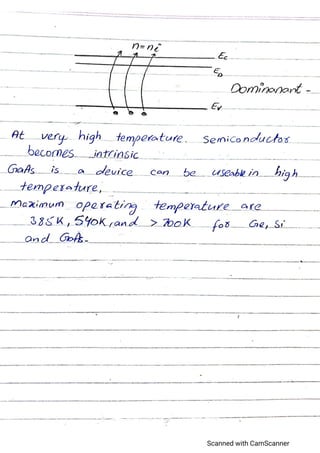 n=ni
Ec
ED
Dominanant -
Ev
At very high temperature. Semiconductor
becomes intrinsic
GaAs is a device can be useable in high
temperature,
Maximum operating temperature are
385K, 540K, and > 700K for Ge, Si
and GaAs.
Scanned with CamScanner